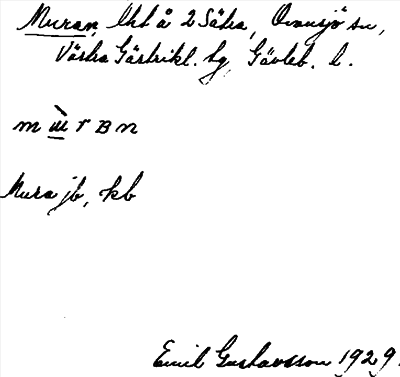 Muran, lht å 2 Säka, Ovansjö sn,
Västra Gästrikl. tg, Gävleb. l.
m ɯ̀ r ʙ n
Mura jb, kb
Emil Gustavsson 1929.